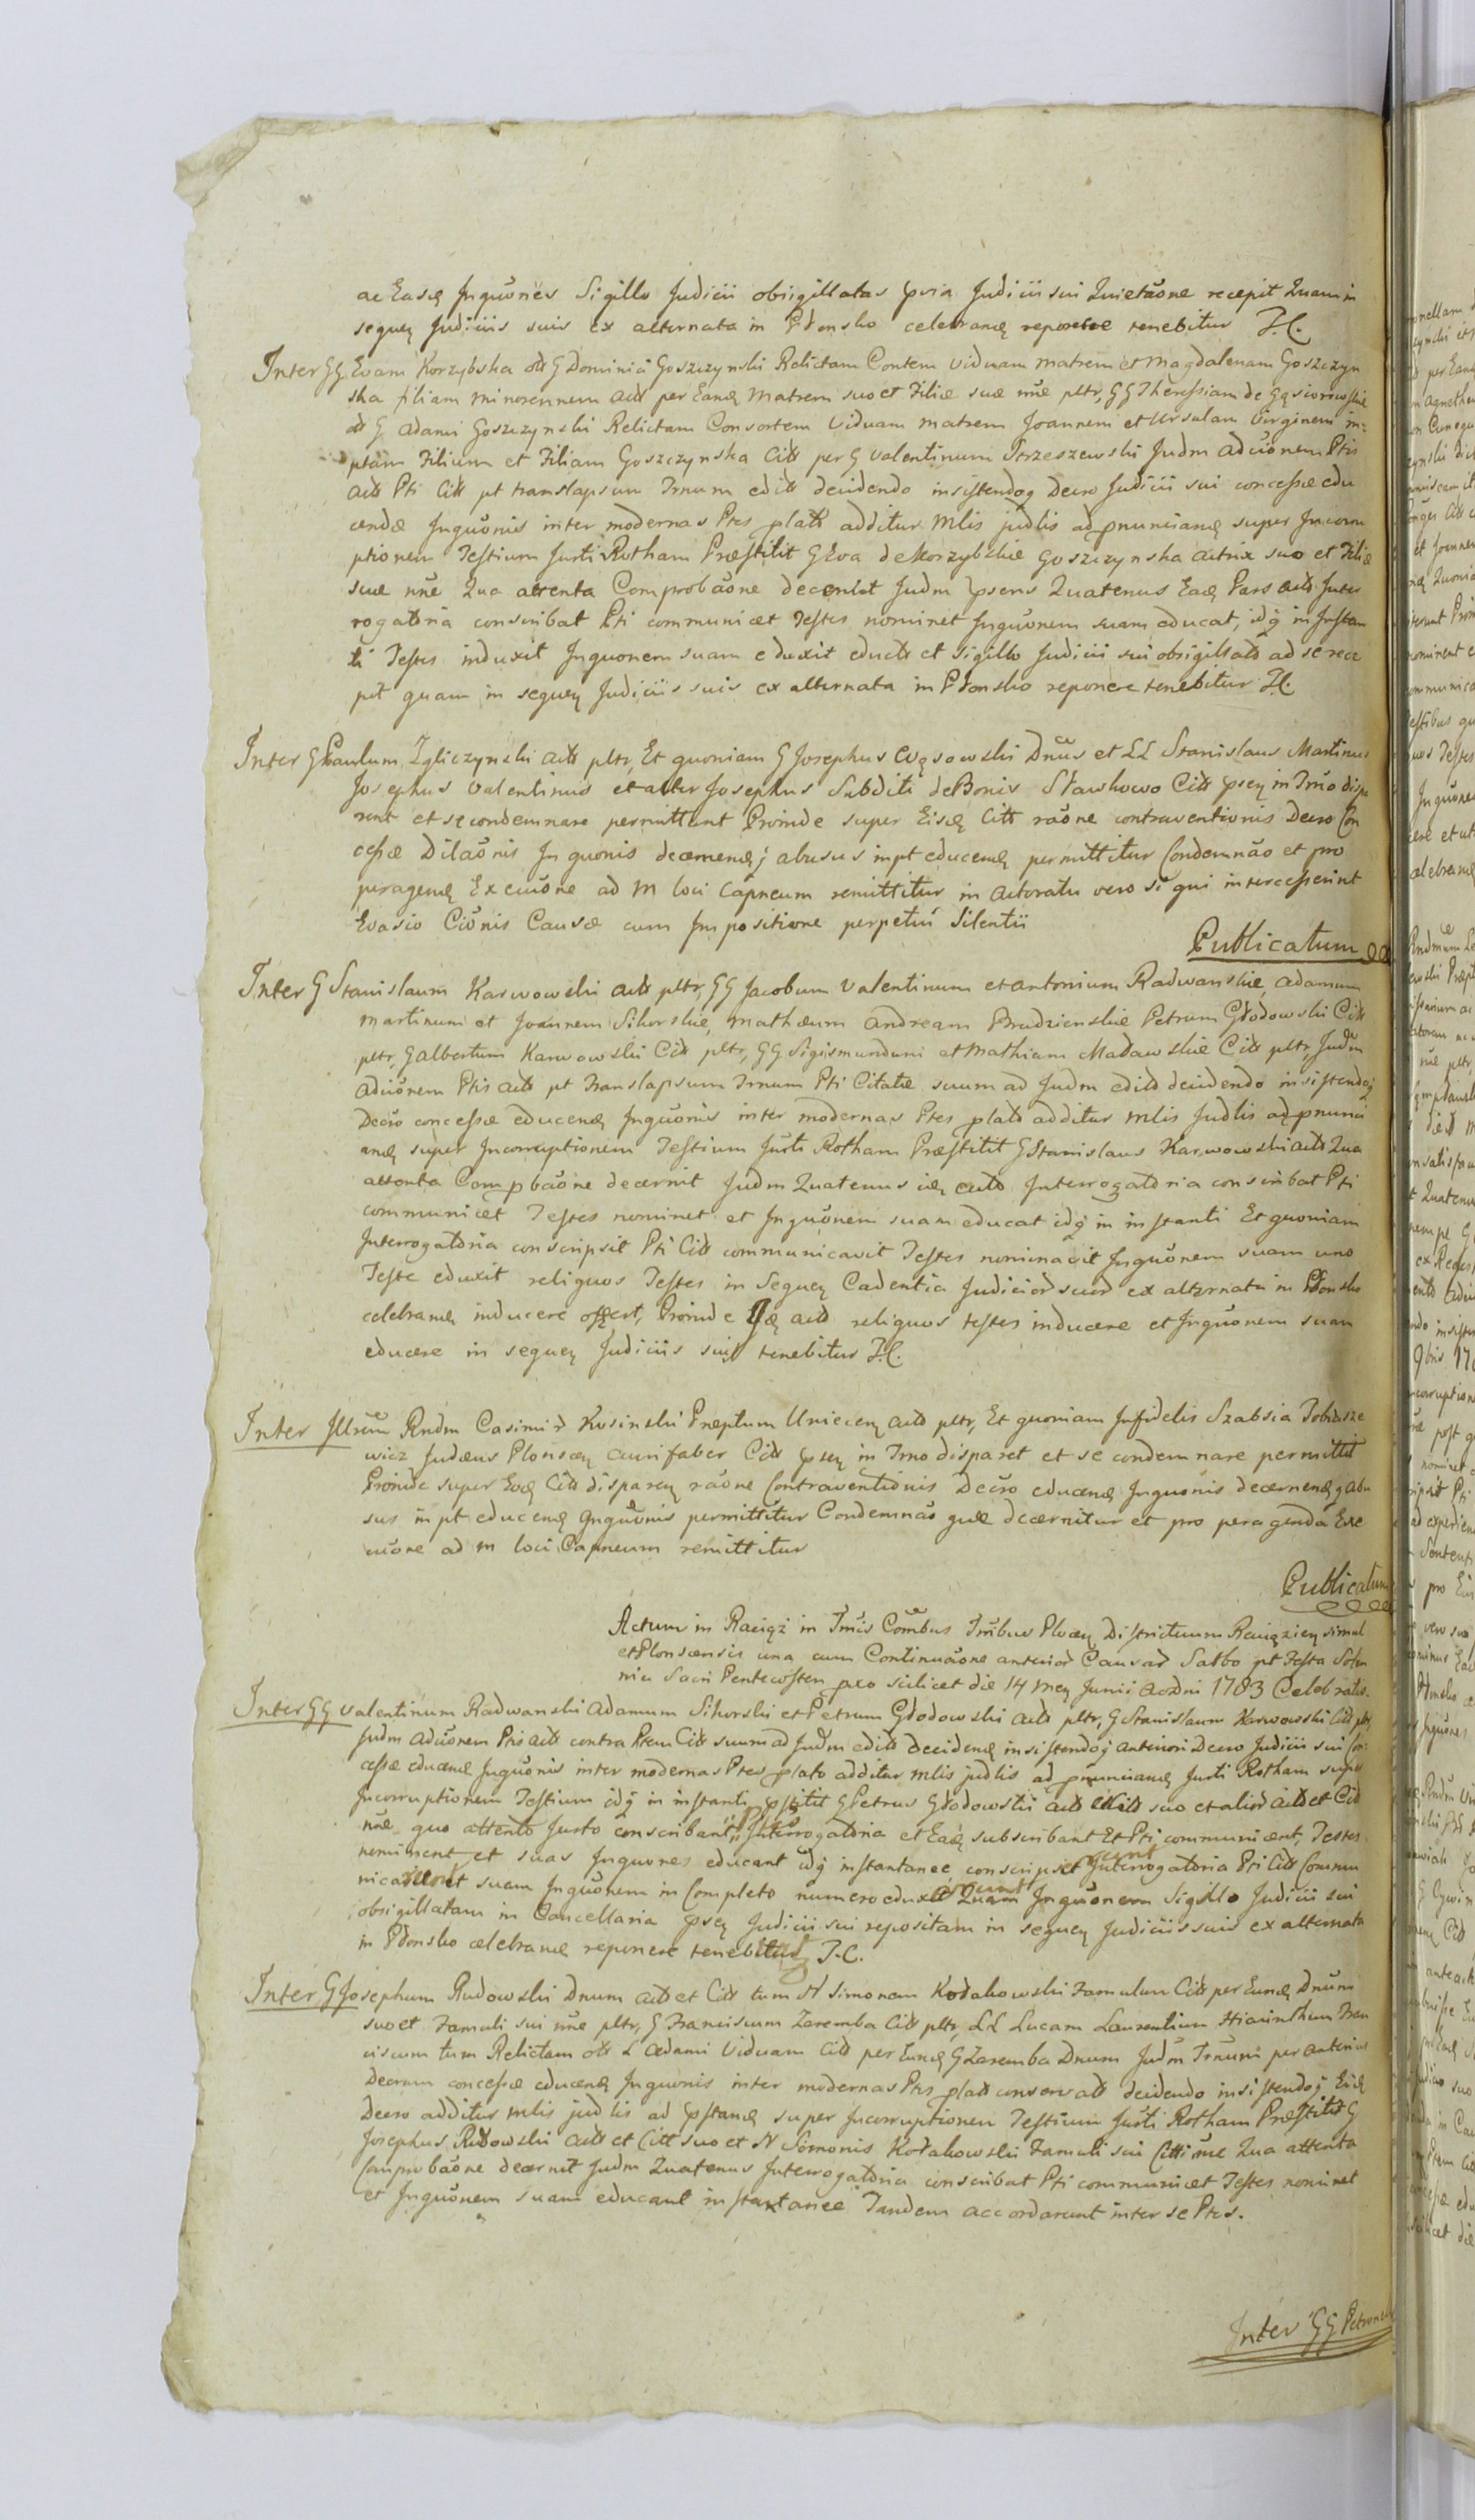 ac Easę Inquões Sigillo Judicii obsigillatas pria Judicii sui Quietãone recepit Quam in
sequeꝫ Judiciis suis ex alternata in Płonsko celebranꝫ reponere tenebitur J.C.
Inter GG Evam Korzybska olt G Dominici Goszczynski Relictam Contem viduam matrem et Magdalenam Goszczyn
ska filiam minorennem actt per Eanꝫ Matrem suo et Filiæ suæ nñe pltr, GG Theressiam de Gąsiorowskie
olt G Adami Goszczynski Relictam Consortem Viduam matrem Joannem et Ursulam Virginem in-
ptam Filium et Filiam Goszczynska Citt per G Valentinum Strzeszewski Judm adcõnem Ptis
actt Pti Citt pt translapsum Trnum editt decidendo insistendoq Decro Judicii sui concessæ edu
cendæ Inquõnis inter modernas Ptes platt additur Mlis judlis ad pnuncianꝫ super Incorru
ptionem Testium Jurti Rotham Præstitit G Eva de Korzybskie Goszczynska actrix suo et Filiæ
suæ nñe Qua attenta Comprobãone decernit Judm psens Quatenus Eadꝫ Pars actt Inter
rogatoria conscribat Pti communicet Testes nominet Inquõnem suam educat, idq̃ in Instan
ti Testes induxit Inquonem suam eduxit eductt et Sigillo Judicii sui obsigillatt ad se rece
pit quam in sequeꝫ Judiciis suis ex alternata in Płonsko reponere tenebitur J.C.
Inter G Paulum Zgliczynski actt pltr, Et quoniam G Josephus Wąsowski Dnus et LL Stanislaus Martinus
Josephus Valentinus et alter Josephus Subditi de Bonis Sławkowo Citt pseꝫ in Trno dispa
rent et se condemnare permittunt Proinde super Eisdꝫ Citt rãone contraventionis Decro Con
cessæ Dilãonis Inquonis decernenꝫ j abusus inpt educenꝫ permittitur Condemnão et pro
peragenꝫ Excuõne ad M loci Capneum remittitur in actoratu vero si qui intercesserint
Evasio Ciõnis Causæ cum Impositione perpetui Silentii
Publicatum
Inter G Stanislaum Karwowski actt pltr, GG Jacobum Valentinum et Antonium Radwanskie, Adamum
Martinum et Joannem Sikorskie, Mathæum Andream Brudzienskie Petrum Głodowski Citt
pltr, G Albertum Karwowski Citt pltr, GG Sigismundum et Mathiam Maława skie Citt pltr, Judm
adcõnem Ptis actt pt Translapsum Trnum Pti Citatæ suum ad Judm editt decidendo insistendoq
Decro concessæ educenꝫ Inquõnis inter modernas Ptes platt additur mlis Judlis ad pnunci
anꝫ super Incorruptionem Testium Jurti Rotham Præstitit G Stanislaus Karwowski actt Qua
attenta Compbãone decernit Judm Quatenus idꝫ actt Interrogatoria conscribat Pti
communicet Testes nominet et Inquõnem suam educat idq̃ in instanti Et quoniam
Interrogatoria conscripsit Pti Citt communicavit Testes nominavit Inquõnem suam uno
Teste eduxit reliquos Testes in Sequeꝫ Cadentia Judicior suor ex alternata in Płonsko
celebranꝫ inducere offert, Proinde actt reliquos testes inducere et Inquõnem suam
educere in sequeꝫ Judiciis suis tenebitur J.C.
Inter Illrem Rndm Casimir Kosinski Præptum Unieceꝫ actt pltr, Et quoniam Infidelis Szabsia Tobiasze
wicz Judæus Plonsceꝫ aurifaber Citt pseꝫ in Trno disparet et se condemnare permittit
Proinde super Eodꝫ Citt dispareꝫ rãone Contraventionis Decro educenꝫ Inquõnis decernenꝫ j abu
sus inpt educenꝫ Inquõnis permittitur Condemnão quæ decernitur et pro peragenda Exe
cuõne ad M loci Capneum remittitur
Publicatum
Actum in Raciąż in Trnis Cõmbus Tribus Plocꝫ Districtuum Raciąziceꝫ simul
et Plonscensis una cum Continuãone anterior Causar Sabbo pt Festa Solen
nia Sacri Pentecosten pxo scilicet die 14 Meꝫ Junii Aodni 1783 Celebratis.
Inter GG Valentinum Radwanski Adamum Sikorski et Petrum Głodowski actt pltr, G Stanislaum Karwowski Citt pltr,
Judm adcõnem Ptis actt contra Ptem Citt suum ad Judm editt decidenꝫ insistendoq anteriori Decro Judicii sui Con
cessæ educenꝫ Inquõnis inter modernas Ptes plato additur mlis judlis ad pnuncianꝫ Jurti Rotham super
Incorruptionem Testium idq̃ in instanti pstitit G Petrus Głodowski actt et Citt suo et alior actt et Citt
nñe quo attento Jurto conscribant Interrogatoria et Eadꝫ subscribant Et Pti communicent, Testes
nominent et suas Inquones educant idq̃ instantanee conscripserunt Interrogatoria Pti Citt Commu
nicarunt suam Inquõnem in Completo numero eduxerunt Quam Inquõnem Sigillo Judicii sui
obsigillatam in Cancellaria pseꝫ Judicii sui repositam in sequeꝫ Judiciis suis ex alternata
in Płonsko celebranꝫ reponere tenebitur J.C.
Inter G Josephum Rudowski Dnum actt et Citt tum N Simonem Kołakowski Famulum Citt per Eunꝫ Dnum
suo et Famuli sui nñe pltr, G Franciscum Zaremba Citt pltr, LL Lucam Laurentium Hiacinthum Fran
ciscum tum Relictam olt L Adami Viduam Citt per Eunꝫ G Zaremba Dnum Judm Trnum per anterius
Decrum concessæ educenꝫ Inquonis inter modernas Ptes platt conservatt decidendo insistendoq Eidꝫ
Decro additur mlis judlis ad pstanꝫ super Incorruptionem Testium Jurti Rotham Præstitit G
Josephus Rudowski actt et Citt suo et N Simonis Kołakowski Famuli sui Citti nñe Qua attenta
Comprobãone decernit Judm Quatenus Interrogatoria conscribat Pti communicet Testes nominet
et Inquõnem suam educant instantanee Tandem accordarunt inter se Ptes.
Inter GG Petronel